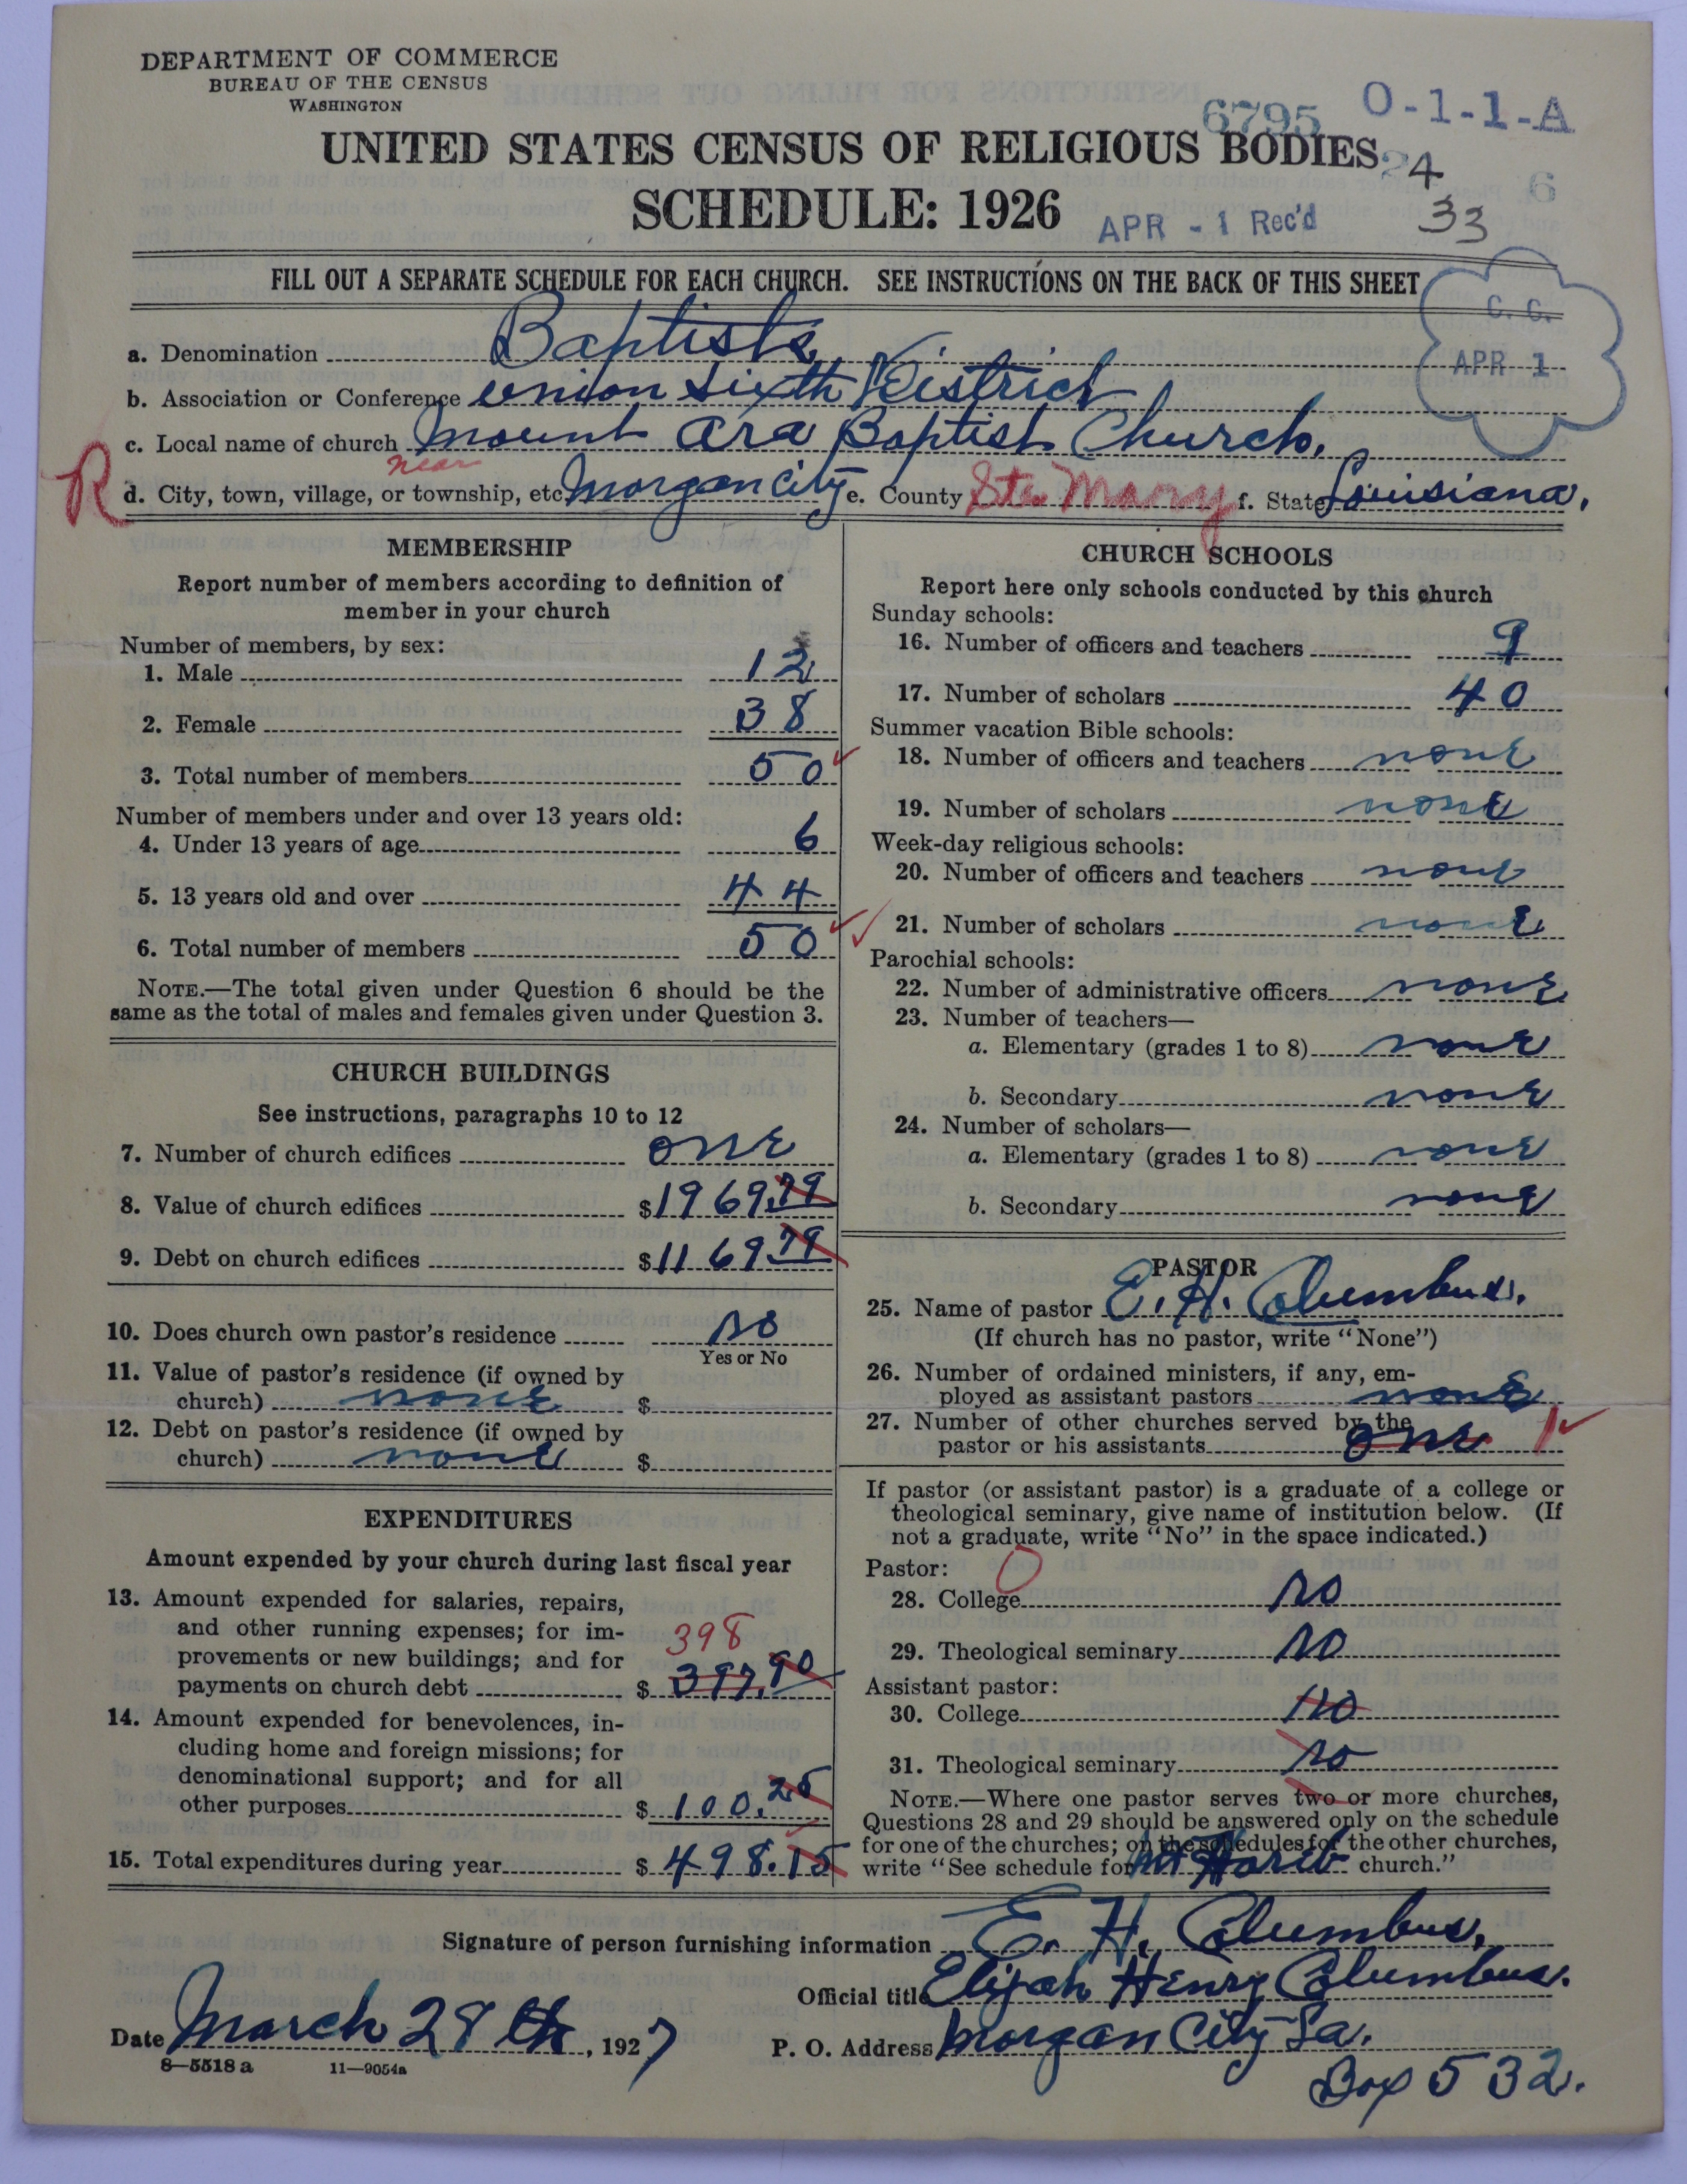 DEPARTMENT OF COMMERCE
BUREAU OF THE CENSUS
WASHINGTON
6795 O-1-1-A
UNITED STATES CENSUS OF RELIGIOUS BODIES
24
6
SCHEDULE: 1926
APR - 1 Rec'd
33
FILL OUT A SEPARATE SCHEDULE FOR EACH CHURCH. SEE INSTRUCTIONS ON THE BACK OF THIS SHEET
C. C.
APR 1
a. Denomination Baptists
b. Association or Conference Union Sixth District
c. Local name of church Mount Ara Baptist Church.
near
R d. City, town, village, or township, etc. Morgan City e. County Ste Mary f. State Louisiana.
MEMBERSHIP
Report number of members according to definition of
member in your church
Number of members, by sex:
1. Male 12
2. Female 38
3. Total number of members 50
Number of members under and over 13 years old:
4. Under 13 years of age 6
5. 13 years old and over 44
6. Total number of members 50
NOTE.—The total given under Question 6 should be the
same as the total of males and females given under Question 3.
CHURCH BUILDINGS
See instructions, paragraphs 10 to 12
7. Number of church edifices one
8. Value of church edifices $1969.79
9. Debt on church edifices $1169 79
10. Does church own pastor's residence no
Yes or No
11. Value of pastor's residence (if owned by
church) none $
12. Debt on pastor's residence (if owned by
church) none $
EXPENDITURES
Amount expended by your church during last fiscal year
13. Amount expended for salaries, repairs,
and other running expenses; for im-
provements or new buildings; and for 398
payments on church debt $ 397.90
14. Amount expended for benevolences, in-
cluding home and foreign missions; for
denominational support; and for all
other purposes $ 100.25
15. Total expenditures during year $ 498.15
CHURCH SCHOOLS
Report here only schools conducted by this church
Sunday schools:
16. Number of officers and teachers 9
17. Number of scholars 40
Summer vacation Bible schools:
18. Number of officers and teachers none
19. Number of scholars none
Week-day religious schools:
20. Number of officers and teachers none
21. Number of scholars none
Parochial schools:
22. Number of administrative officers none
23. Number of teachers—
a. Elementary (grades 1 to 8) none
b. Secondary none
24. Number of scholars—
a. Elementary (grades 1 to 8) none
b. Secondary none
PASTOR
25. Name of pastor E. H. Columbus.
(If church has no pastor, write "None")
26. Number of ordained ministers, if any, em-
ployed as assistant pastors none
27. Number of other churches served by the
pastor or his assistants one 1
If pastor (or assistant pastor) is a graduate of a college or
theological seminary, give name of institution below. (If
not a graduate, write "No" in the space indicated.)
Pastor: 0
28. College no
29. Theological seminary no
Assistant pastor:
30. College no
31. Theological seminary no
NOTE.—Where one pastor serves two or more churches,
Questions 28 and 29 should be answered only on the schedule
for one of the churches; on the schedules for the other churches,
write "See schedule for Mt Horeb church."
Signature of person furnishing information E. H. Columbus.
Official title Elijah Henry Columbus.
Date March 28th, 1927 P. O. Address Morgan City La.
8—5518 a 11—9054a
Box 532.